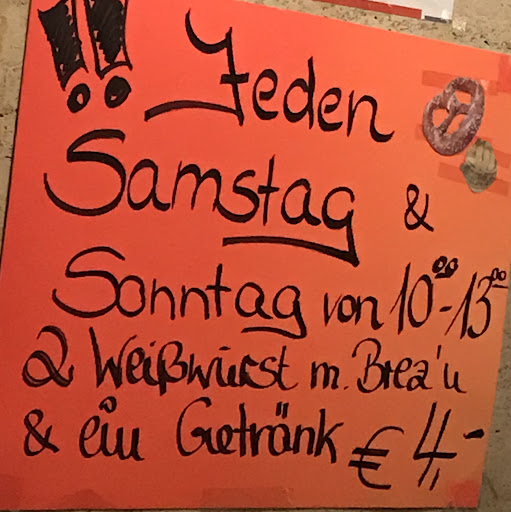 !! Jeden
Samstag &
Sonntag von 10⁰⁰-13⁰⁰
2 Weißwürst m. Brez'n
& ein Getränk € 4,-